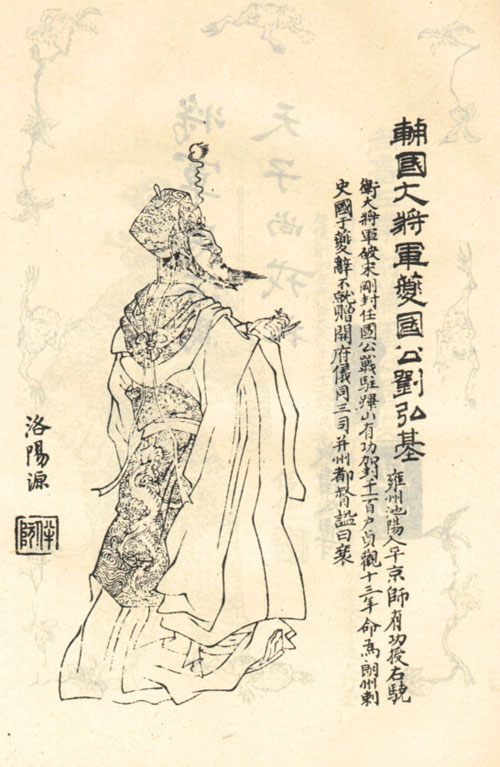 輔國大將軍夔國公劉弘基
雍州池陽人平京師有功授右驍
衛大將軍破宋剛封任國公戰駐蹕山有功加封千一百户貞觀十三年命爲朗州刺
史國于夔辭不就贈開府儀同三司并州都督諡曰襄
洛陽源